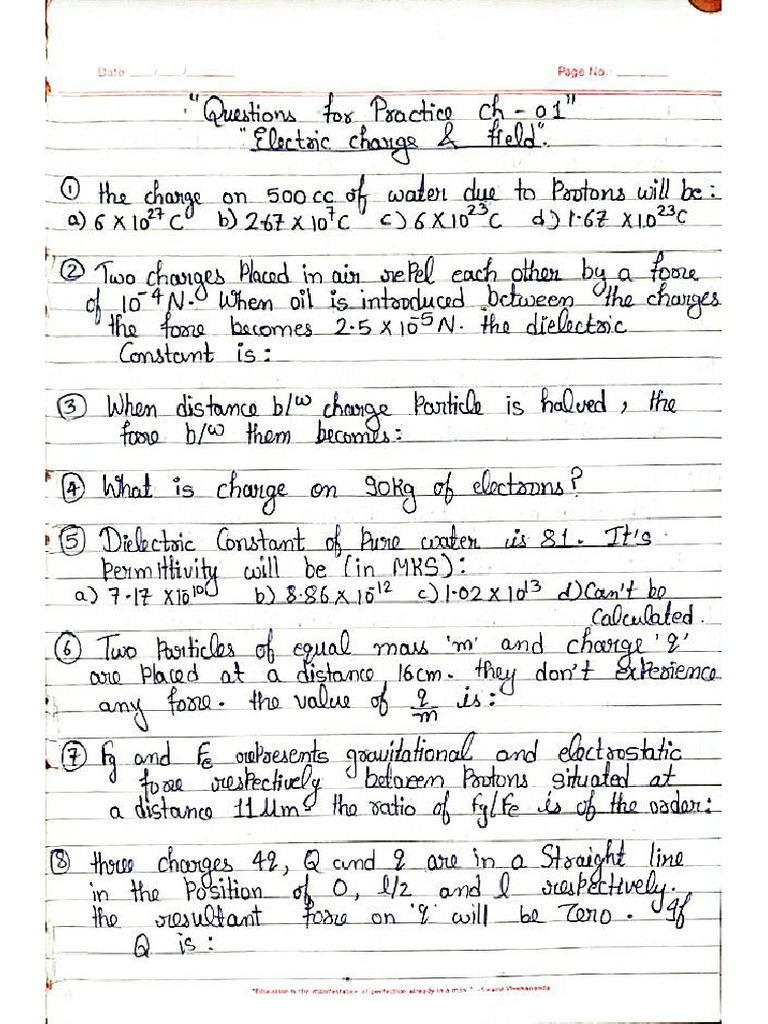 Date ___/___/______ Page No. ______
"Questions for Practice Ch - 01"
"Electric charge & field".
① the charge on 500 cc of water due to Protons will be:
a) 6 × 10²⁷ C b) 2.67 × 10⁷ C c) 6 × 10²³ C d) 1.67 × 10²³ C
② Two charges Placed in air repel each other by a force
of 10⁻⁴ N. When oil is introduced between the charges
the force becomes 2.5 × 10⁻⁵ N. the dielectric
Constant is:
③ When distance b/w charge Particle is halved, the
force b/w them becomes:
④ What is charge on 90Kg of electrons?
⑤ Dielectric Constant of Pure water is 81. It's
Permittivity will be (in MKS):
a) 7.17 × 10¹⁰ b) 8.86 × 10¹² c) 1.02 × 10¹³ d) Can't be
Calculated.
⑥ Two Particles of equal mass 'm' and charge 'q'
are Placed at a distance 16cm. they don't experience
any force. the value of q/m is:
⑦ Fg and Fe represents gravitational and electrostatic
force respectively between Protons situated at
a distance 11 Um. the ratio of Fg/Fe is of the order:
⑧ three charges 4q, Q and q are in a Straight line
in the Position of 0, l/2 and l respectively.
the resultant force on 'q' will be Zero. If
Q is:
"Education is the manifestation of perfection already in a man." - Swami Vivekananda